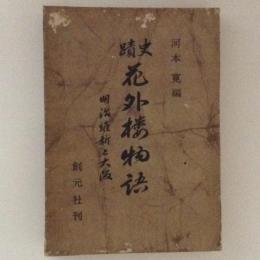 河本寛編
史蹟
花外楼物語
明治維新と大阪
創元社刊